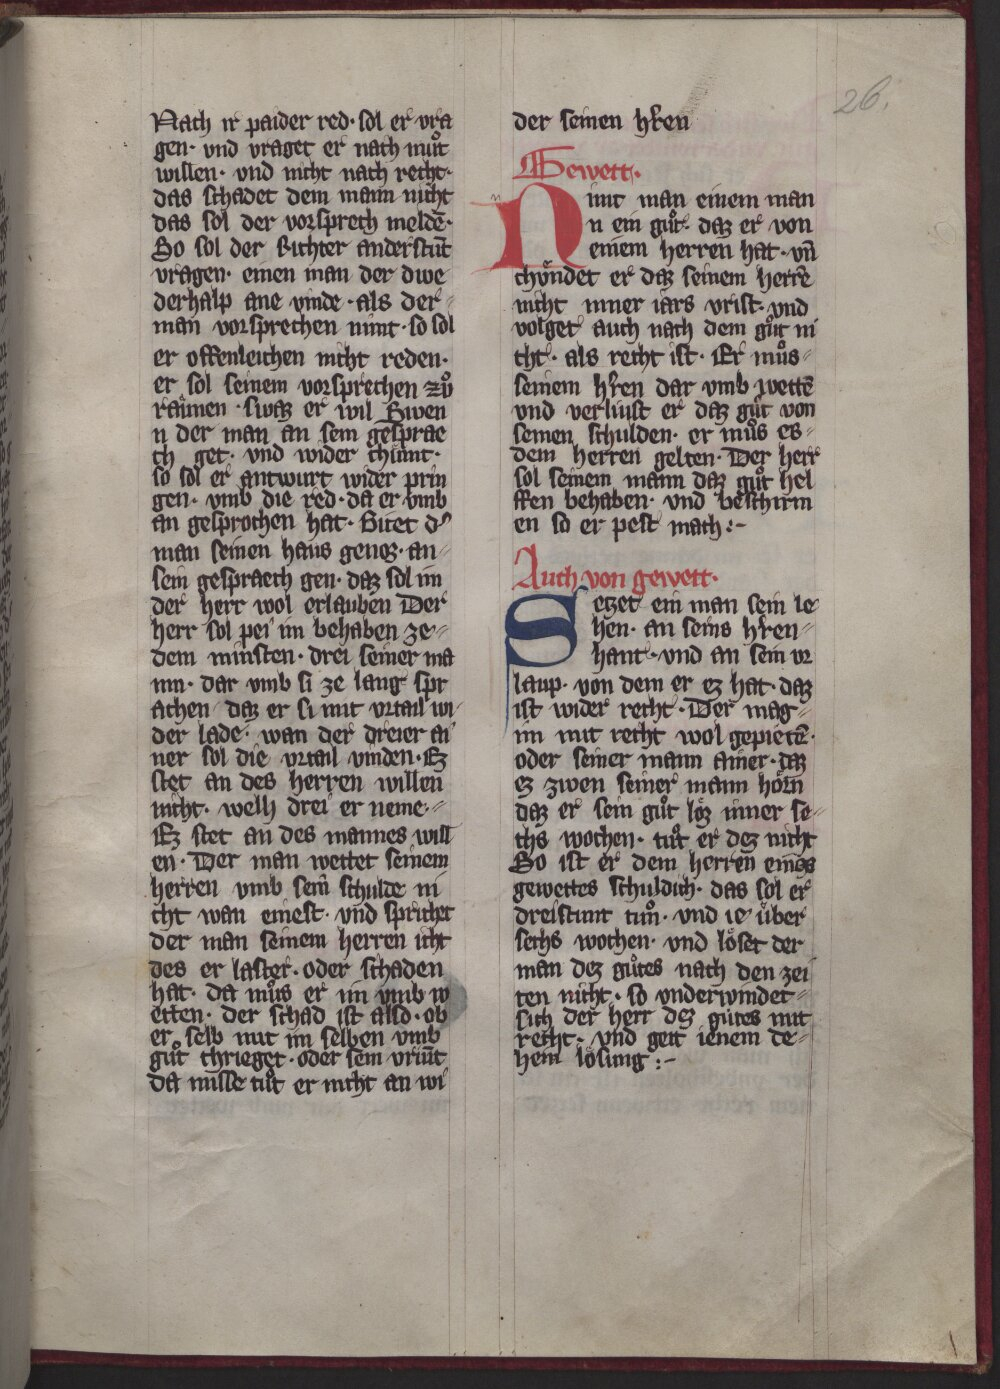 26.
Nach ir paider red · sol er vra
gen · vnd vraget er nach muͦt
willen · vnd nicht nach recht ·
das schadet dem mann nicht
das sol der vorsprech meldē ·
So sol der Richter anderstūt
vragen · einen man der dwe
derhalp ane vinde · als der
man vorsprechen nimt · so sol
er offenleichen nicht reden ·
er sol seinem vorsprechen zuͦ
raͤumen · swaz er wil Swen
n der man an sein gesprae
ch get · vnd wider chuͤmt ·
so sol er antwurt wider prin
gen · vmb die red · da er vmb
an gesprochen hat · Bitet d᾽
man seinen haus genoz · an
sein gespraech gen · daz sol im
der herr wol erlauben Der
herr sol pei im behaben ze
dem minsten · drei seiner ma
nn · dar vmb si ze lang spr
achen daz er si mit vrtail wi
der lade · wan der dreier ai
ner sol die vrtail vinden · Ez
stet an des herren willen
nicht · welh drei er neme ·
Ez stet an des mannes will
en · Der man wettet seinem
herren vmb sein̄ schulde ni
cht wan einest · vnd sprichet
der man seinem herren icht
des er laster · oder schaden
hat · da muͦs er im vmb w
etten · der schad ist also · ob
er selb mit im selben vmb
guͦt chrieget · oder sein vriūt
da misse tuͦt er nicht an wi
der seinen hr̄en
Gewett ·
Nimt man einem man
n ein guͦt · daz er von
einem herren hat · vn̄
chuͤndet er daz seinem herrē
nicht inner iars vrist · vnd
volget auch nach dem guͦt ni
cht · als recht ist · Er muͦs
seinem hr̄en dar vmb wettē
vnd verliust er daz guͦt von
seinen schulden · er muͦs es
dem herren gelten · Der herr
sol seinem mann daz guͦt hel
ffen behaben · vnd beschirm
en so er pest mach :~
Auch von gewett ·
Setzet ein man sein le
hen · an seins hr̄en
hant · vnd an sein vr
laup · von dem er ez hat · daz
ist wider recht · Der mag
im mit recht wol gepietē ·
oder seiner mann ainer · daz
ez zwen seiner mann hoͤrn
daz er sein guͦt loͤz inner se
chs wochen · tuͦt er dez nicht
So ist er dem herren eines
gewettes schuldich · das sol er
dreistunt tuͦn · vnd ie uͤber
sechs wochen · vnd loͤset der
man dez guͦtes nach den zei
ten nicht · so vnderwindet
sich der herr dez guͦtes mit
recht · vnd geit ienem de
hein loͤsung :~